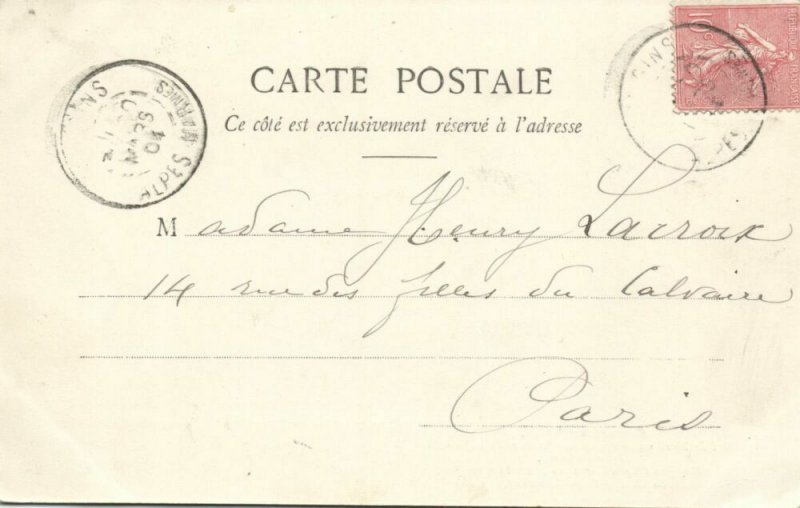 CARTE POSTALE
Ce côté est exclusivement réservé à l'adresse
Madame Henry Lacroix
14 rue des filles du Calvaire
Paris
MARS
04
ALPES MARITIMES
10